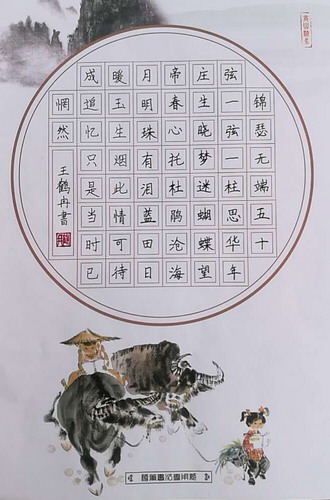 锦瑟无端五十
弦一弦一柱思华年
庄生晓梦迷蝴蝶望
帝春心托杜鹃沧海
月明珠有泪蓝田日
暖玉生烟此情可待
成追忆只是当时已
惘然
王鹤冉書